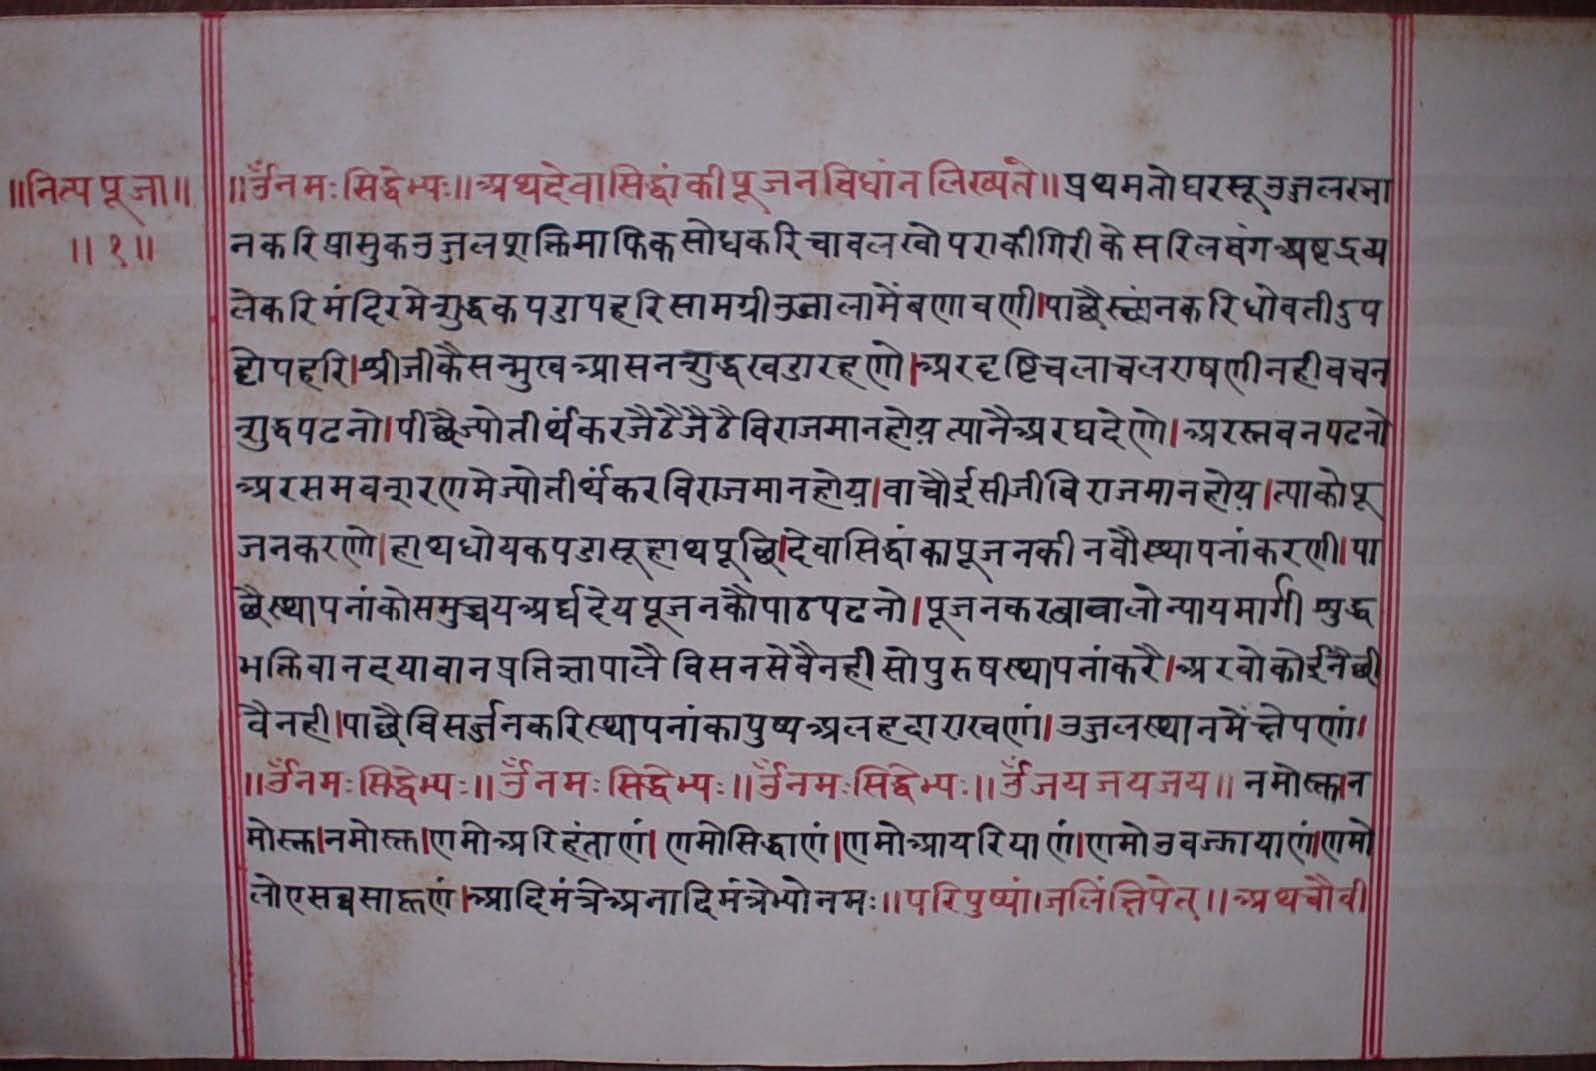 ॥नित्य पूजा॥
॥१॥
॥ॐनमःसिद्धेभ्यः॥अथदेवासिद्धांकीपूजनविधांनलिख्यते॥प्रथमतोघरसूउजलस्ना
नकरिप्रासुकउजुलशक्तिमाफिकसोधकरिचावलखोपराकीगिरीकेसरिलवंगअष्टद्रव्य
लेकरिमंदिरमेशुद्धकपडापहरिसामग्रीउजालामेंबणावणी।पाछैस्नांनकरिधोवतीडुप
ट्टोपहरि।श्रीजीकैसन्मुखआसनशुद्धखडारहणो।अरदृष्टिचलाचलराषणीनहीवचन
शुद्धपढनो।पीछैज्योतीर्थंकरजैठैजैठैविराजमानहोय़त्यानैअरघदेणो।अरस्तवनपढनो
अरसमवशरणमेज्योतीर्थंकरविराजमानहोय़।वाचौईसीजीविराजमानहोय़।त्याकोपू
जनकरणो।हाथधोयकपडासूहाथपूछि।देवासिद्धांकापूजनकीनवौस्थापनांकरणी।पा
छैस्थापनांकोसमुच्चयअर्घदेयपूजनकौपाठपढनो।पूजनकरबावालोन्यायमार्गीशुद्ध
भक्तिवानदयावानप्रतिज्ञापालैविसनसेवैनहीसोपुरुषस्थापनांकरै।अरवोकोईनैछी
वैनही।पाछैविसर्जनकरिस्थापनांकापुष्पअलहदाराखणां।उजलस्थानमेंक्षेपणां।
॥ॐनमःसिद्धेभ्यः॥ॐनमःसिद्धेभ्यः॥ॐनमःसिद्धेभ्यः॥ॐजयजयजय॥नमोस्तु।न
मोस्तु।नमोस्तु।णमोअरिहंताणं।णमोसिद्धाणं।णमोआयरियाणं।णमोउवज्झायाणं।णमो
लोएसव्वसाहूणं।आदिमंत्रेअनादिमंत्रेभ्योनमः॥परिपुष्पां।जलिंक्षिपेत्॥अथचौवी